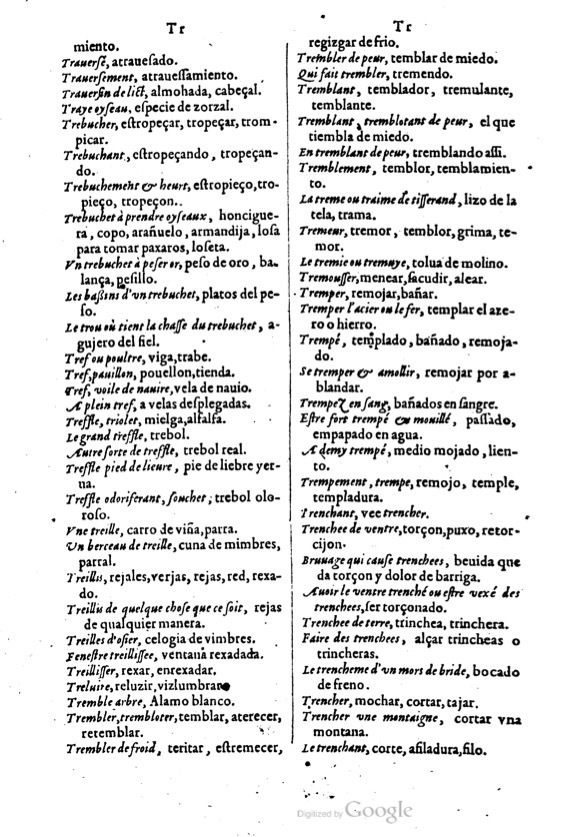 Tr
miento.
Trauerſé, atraueſado.
Trauerſement, atraueſſamiento.
Trauerſin de lict, almohada, cabeçal.
Traye oyſeau, eſpecie de zorzal.
Trebucher, eſtropeçar, tropeçar, trom-
picar.
Trebuchant, eſtropeçando, tropeçan-
do.
Trebuchement & heurt, eſtropieço, tro-
pieço, tropeçon.
Trebuchet à prendre oyſeaux, honcigue-
ra, copo, arañuelo, armandija, loſa
para tomar paxaros, loſeta.
Vn trebuchet à peſer or, peſo de oro, ba-
lança, peſillo.
Les baßins d'vn trebuchet, platos del pe-
ſo.
Le trou où tient la chaſſe du trebuchet, a-
gujero del fiel.
Tref ou poultre, viga, trabe.
Tref, pauillon, pouellon, tienda.
Tref, voile de nauire, vela de nauio.
A plein tref, a velas deſplegadas.
Treffle, triolet, mielga, alfalfa.
Le grand treffle, trebol.
Autre ſorte de treffle, trebol real.
Treffle pied de lieure, pie de liebre yer-
ua.
Treffle odoriferant, ſouchet; trebol olo-
roſo.
Vne treille, carro de viña, parra.
Vn berceau de treille, cuna de mimbres,
parral.
Treillis, rejales, verjas, rejas, red, rexa-
do.
Treillis de quelque choſe que ce ſoit, rejas
de qualquier manera.
Treilles d'oſier, celogia de vimbres.
Feneſtre treilliſſee, ventana rexadada.
Treilliſſer, rexar, enrexadar.
Treluire, reluzir, vizlumbrar
Tremble arbre, Alamo blanco.
Trembler, trembloter, temblar, aterecer,
retemblar.
Trembler de froid, teritar, eſtremecer,
Tr
regizgar de frio.
Trembler de peur, temblar de miedo.
Qui fait trembler, tremendo.
Tremblant, temblador, tremulante,
temblante.
Tremblant, tremblotant de peur, el que
tiembla de miedo.
En tremblant de peur, tremblando aſſi.
Tremblement, temblor, temblamien-
to.
La treme ou traime de tiſſerand, lizo de la
tela, trama.
Tremeur, tremor, temblor, grima, te-
mor.
Le tremie ou tremuye, tolua de molino.
Tremouſſer, menear, ſacudir, alear.
Tremper, remojar, bañar.
Tremper l'acier ou le fer, templar el aze-
ro o hierro.
Trempé, templado, bañado, remoja-
do.
Se tremper & amollir, remojar por a-
blandar.
Trempez en ſang, bañados en ſangre.
Eſtre fort trempé & mouillé, paſſado,
empapado en agua.
A demy trempé, medio mojado, lien-
to.
Trempement, trempe, remojo, temple,
templadura.
Trenchant, vee trencher.
Trenchee de ventre, torçon, puxo, retor-
cijon.
Bruuage qui cauſe trenchees, beuida que
da torçon y dolor de barriga.
Auoir le ventre trenché ou eſtre vexé des
trenchees, ſer torçonado.
Trenchee de terre, trinchea, trinchera.
Faire des trenchees, alçar trincheas o
trincheras.
Le trencheme d'vn mors de bride, bocado
de freno.
Trencher, mochar, cortar, tajar.
Trencher vne montaigne, cortar vna
montana.
Le trenchant, corte, afiladura, filo.
Digitized by Google